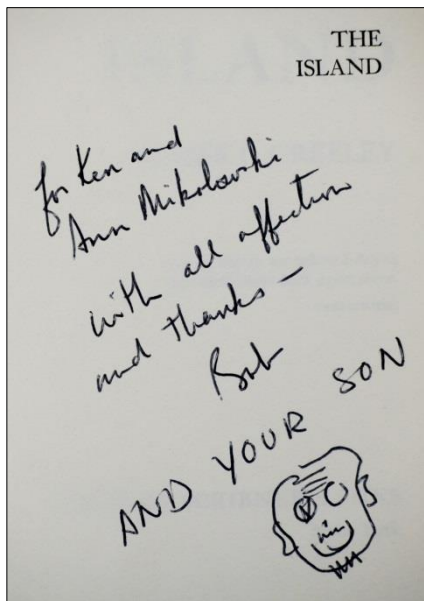 THE
ISLAND
for Ken and
Ann Mikolowski
with all affection
and thanks —
Bob
AND YOUR SON